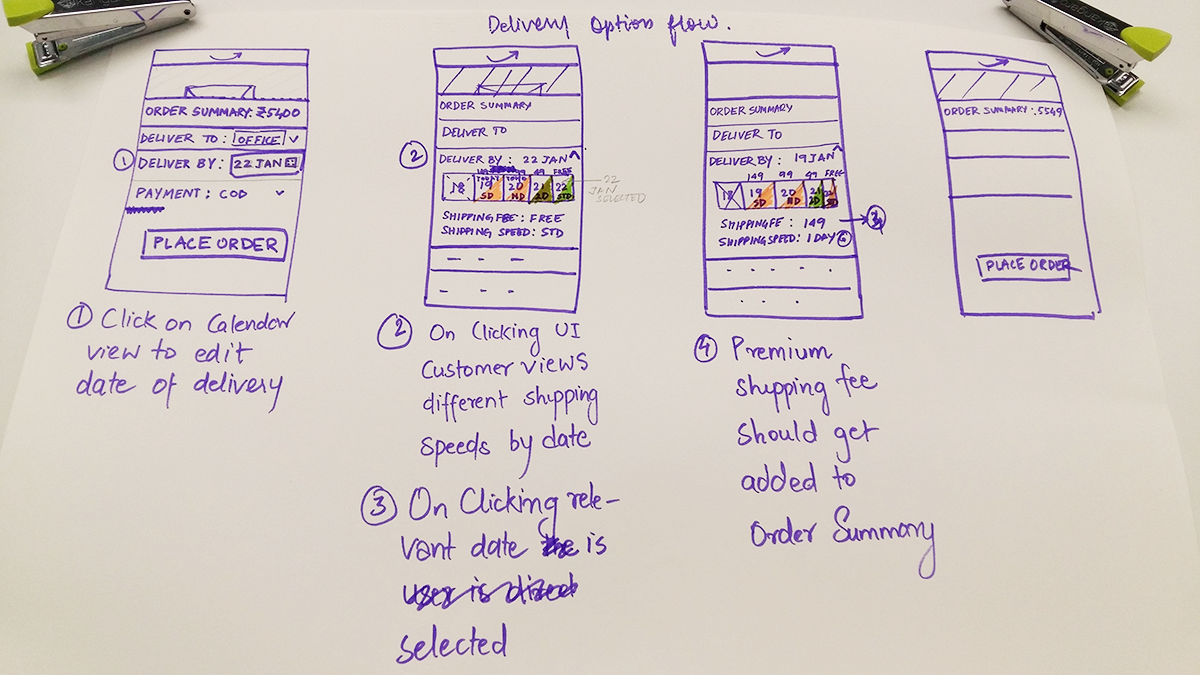 Delivery Option flow.
ORDER SUMMARY: ₹5400
DELIVER TO: OFFICE
① DELIVER BY: 22 JAN
PAYMENT: COD
PLACE ORDER
① Click on Calendar
view to edit
date of delivery
ORDER SUMMARY
DELIVER TO
② DELIVER BY: 22 JAN
49 FREE
18 19 20 21 22
SD ND STD
22
JAN
SELECTED
SHIPPING FEE: FREE
SHIPPING SPEED: STD
② On Clicking UI
Customer views
different shipping
speeds by date
③ On Clicking rele-
vant date is
selected
ORDER SUMMARY
DELIVER TO
DELIVER BY: 19 JAN
149 99 49 FREE
18 19 20 21 22
SD ND 2D STD
SHIPPING FEE: 149
SHIPPING SPEED: 1 DAY
④ Premium
shipping fee
should get
added to
Order Summary
ORDER SUMMARY: 5549
PLACE ORDER